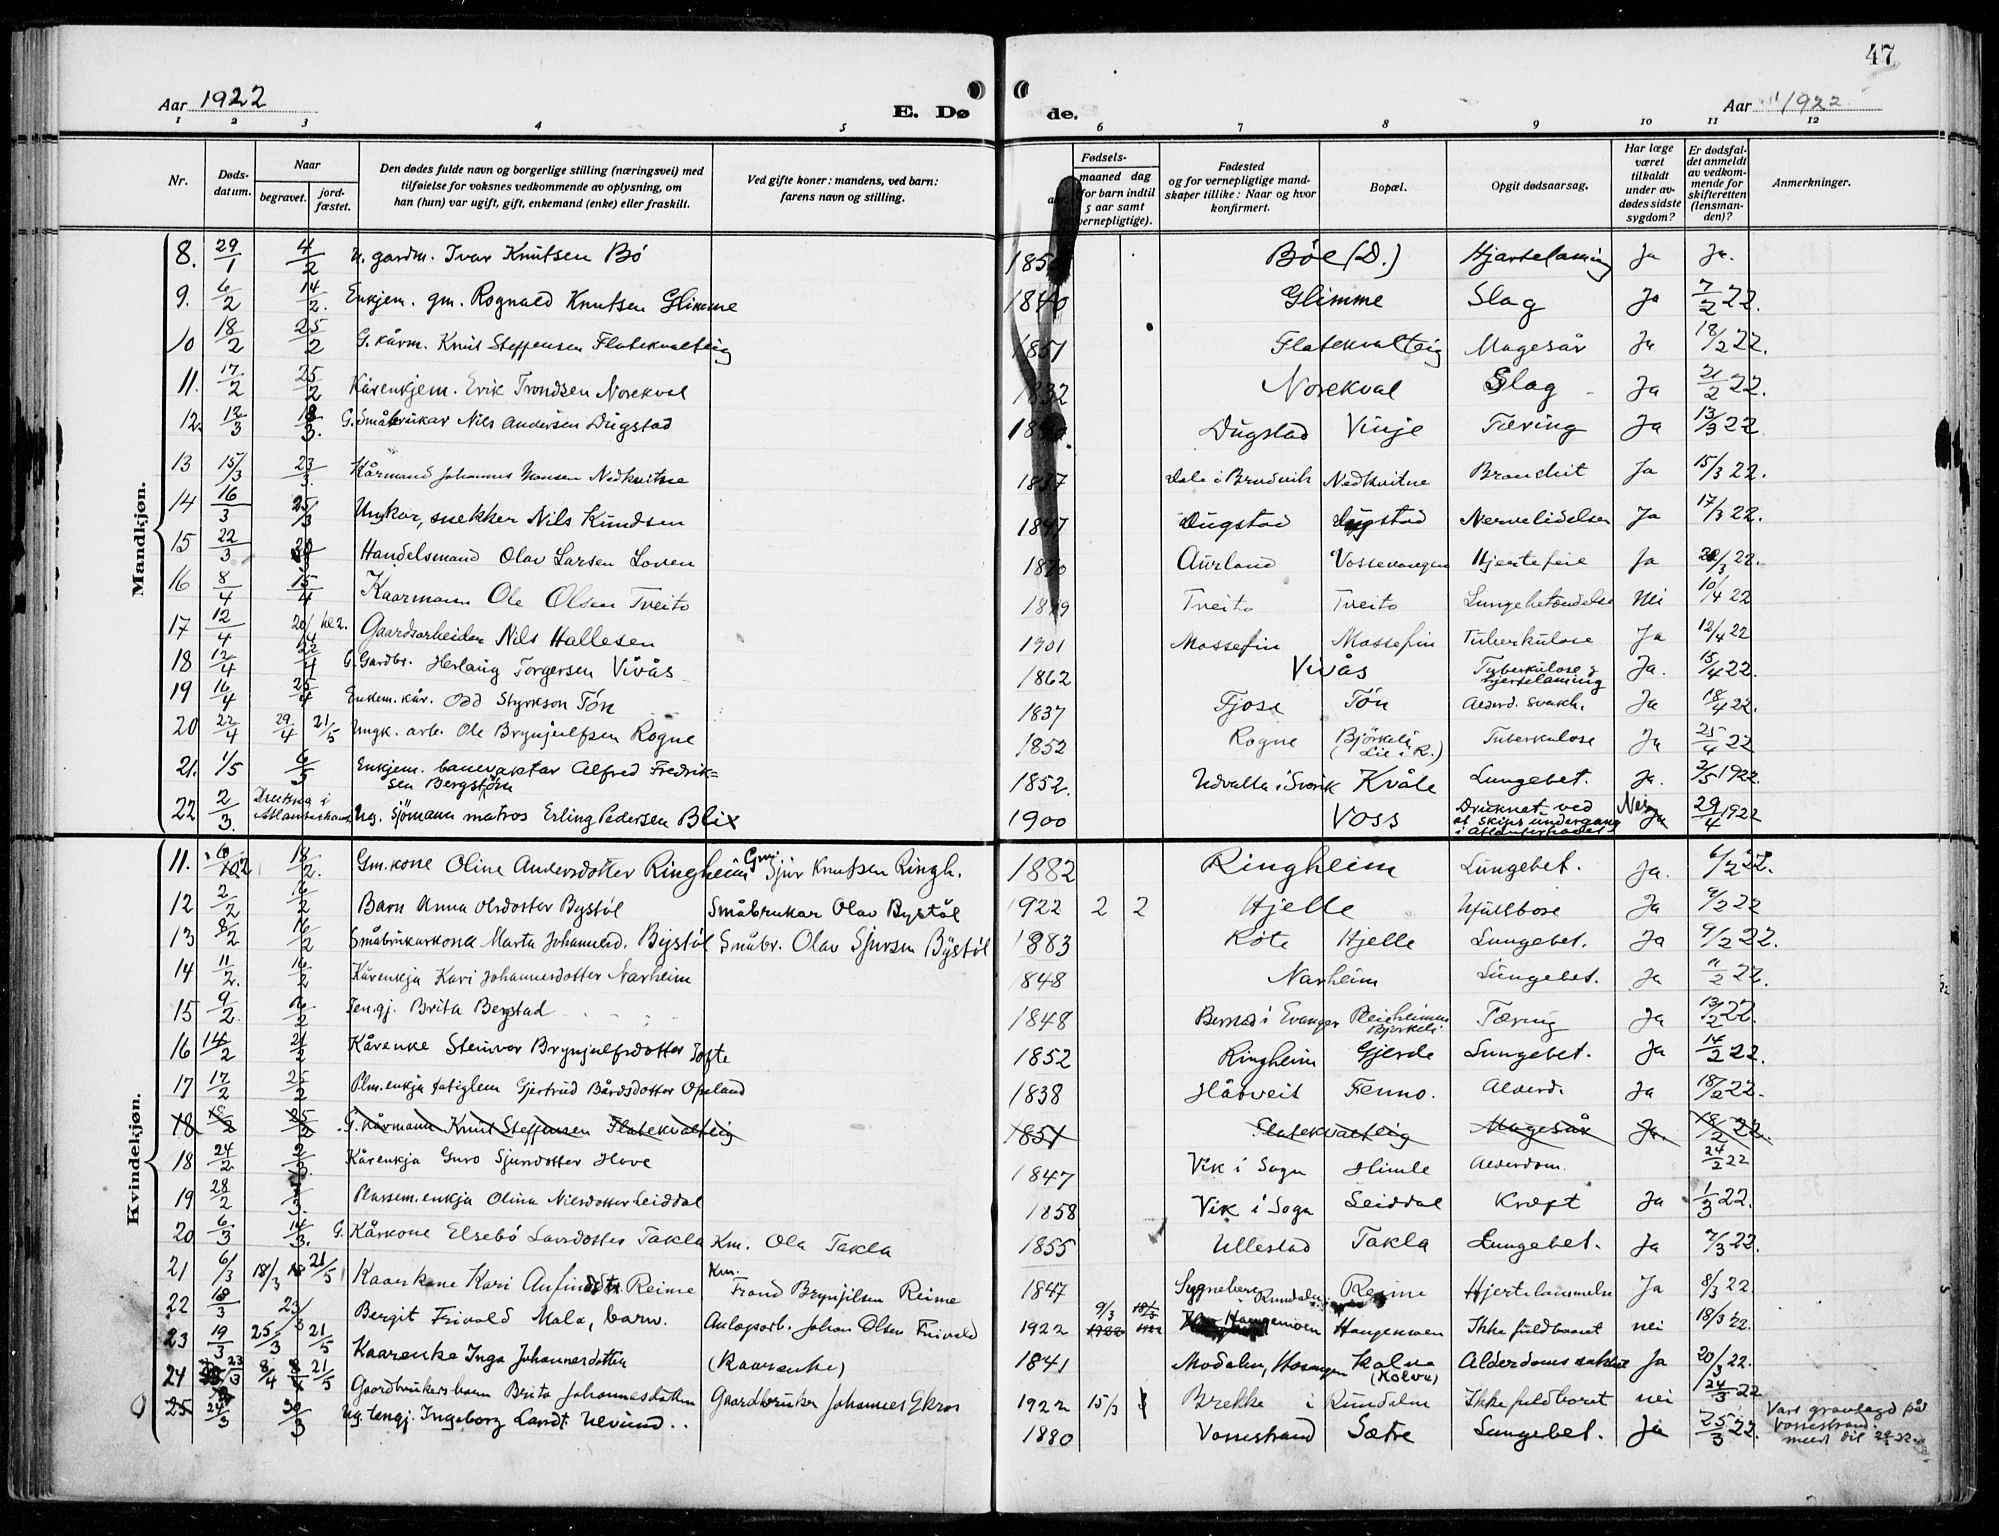 47
Aar 1922
E. Døde.
Aar 1922
1 2 3 4 5 6 7 8 9 10 11 12
Nr.
Døds-
datum.
Naar
begravet.
jord-
fæstet.
Den dødes fulde navn og borgerlige stilling (næringsvei) med
tilføielse for voksnes vedkommende av oplysning, om
han (hun) var ugift, gift, enkemand (enke) eller fraskilt.
Ved gifte koner: mandens, ved barn:
farens navn og stilling.
Fødsels-
maaned dag
(for barn indtil
5 aar samt
vernepligtige).
Fødested
og for vernepligtige mand-
skaper tillike: Naar og hvor
konfirmert.
Bopæl.
Opgit dødsaarsag.
Har læge
været
tilkaldt
under av-
dødes sidste
sygdom?
Er dødsfal-
det anmeldt
av vedkom-
mende for
skifteretten
(lensman-
den)?
Anmerkninger.
Mandkjøn.
8. 29/1 4/2 gardm. Ivar Knutsen Bö Böe (D.) Hjartelaming Ja Ja.
9. 6/2 14/2. Enkjem. gm. Rognald Knutsen Glimme 1840 Glimme Slag Ja 7/2 22.
10 18/2 25/2 G. kårm. Knut Steffensen Flatekvalteig 1851 Flatekvalteig Magesår Ja 18/2 22.
11. 17/2 25/2 Kårenkjem. Erik Trondsen Norekval 1832 Norekval Slag Ja 21/2 22.
12. 12/3 18/3. G. Småbrukar Nils Andersen Dugstad Dugstad Vinje Tæring Ja 13/3 22
13 15/3 23/3. Kårmand Johannes Monsen Nedkvitne 1837 Dale i Bruvik Nedkvitne Bronchit Ja 15/3 22.
14 16/3 25/3 Ungkar, snekker Nils Knudsen 1847 Dugstad Dugstad Nervelidelser Ja 17/3 22.
15 22/3 Handelsmand Olav Larsen Loven 1870 Aurland Vossevangen Hjertefeil Ja 22.
16 8/4 15/4 Kaarmann Ole Olsen Tveito 1849 Tveito Tveito Lungebetændelse Nei 10/4 22
17 12/4 20/4 kl 2. Gaardsarbeider Nils Hallesen 1901 Mossefin Mossefin Tuberkulose Ja 12/4 22
18 12/4 22/4 G. Gardbr. Herlaug Torgersen Vivås 1862 Vivås Tuberkulose, hjertelaming Ja. 15/4 22.
19 16/4 25/4 Enkem. kår. Odd Styrkson Tön 1837 Fjose Tön Alderd. svakh. Ja 18/4 22.
20 22/4 29/4 21/5 Ungk. arb. Ole Brynjulfsen Rogne 1852 Rogne Björkeli (Lie i R.) Tuberkulose Ja 25/4 22
21. 1/5 6/5 Enkjem. banevaktar Alfred Fredrik=
sen Bergström 1852. Udvalla i Sverik Kvåle Lungebet. Ja. 2/5 1922.
22 2/3. Drukna i Atlanterhavet Ug. Sjömann matros Erling Pedersen Blix 1900 Voss Druknet ved et skips undergang i Atlanterhavet Nei 29/4 1922
Kvindekjøn.
11. 6/2 18/2. Gm. kone Oline Andersdotter Ringheim Gm. Sjur Knutsen Ringh. 1882 Ringheim Lungebet. Ja. 6/2 22.
12 2/2 16/2 Barn Anna Olsdotter Bystöl Småbrukar Olav Bystöl 1922 2 2 Hjelle Ufullbore Ja 9/2 22
13 8/2 16/2 Småbrukarkona Marta Johannesd. Bystöl Småbr. Olav Sjursen Bystöl 1883 Köte Hjelle Lungebet. Ja 9/2 22.
14 11/2. 16/2 Kårenkja Kari Johannesdotter Narheim 1848 Narheim Lungebet. Ja 11/2 22.
15 9/2. 16/2 Ten.gj. Brita Bergstad 1848 Evanger Tæring Ja 13/2 22.
16 14/2 21/2 Kårenke Steinvor Brynjulfsdotter Tofte 1852 Ringheim Gjerde Lungebet. Ja 14/2 22.
17 17/2 25/2 Plm. enkja fatiglem Gjertrud Bårdsdotter Opeland 1838 Håtveit Fenno. Alderd. Ja 18/2 22.
18 18/2 25/2 G. kårmann Knut Steffensen Flatekvalteig 1851 Flatekvalteig Magesår Ja. 18/2 22.
18 24/2 2/3. Kårenkja Guro Sjursdotter Hove 1847 Vik i Sogn Himle Alderdom. 24/2 22
19 28/2 Plassem. enkja Olina Nilsdotter Leiddal 1858 Vik i Sogn Leiddal Kræft Ja 1/3 22.
20 6/3 14/3. G. Kårkone Elsebö Larsdotter Takla Km. Ola Takla 1855 Ullestad Takla Lungebet. Ja 7/3 22.
21 6/3 18/3 21/5 Kaarkone Kari Anfindsdtr. Reime Km. Trond Brynjulsen Reime 1847 Reime Hjertelammelse Ja 8/3 22.
22 18/3 23/3 Bergit Frivold Mala, barn. Anlægsarb. Johan Olsen Frivold 1922 9/3 18/3 Haugamoen Haugamoen Ikke fuldbaaret nei 18/3 22.
23 19/3 25/3 21/5 Kaarenke Inga Johannesdotter (Kaarenke) 1841 Modalen, Hosanger Kolve (Kolve) Alderdomssvakhet Ja 20/3 22.
24 23/3 8/4 21/5 Gaardbrukersbarn Brita Johannesdatter Gaardbruker Johannes Gkros 1922 15/3 Brekke i Rundalen Ikke fuldbaaret nei 24/3 22
25 24/3 30/3 Ug. tengj. Ingeborg 1880 Vossestrand Sætre Lungebet. Ja 25/3 22. Vart gravlagd på
Vossestrand.